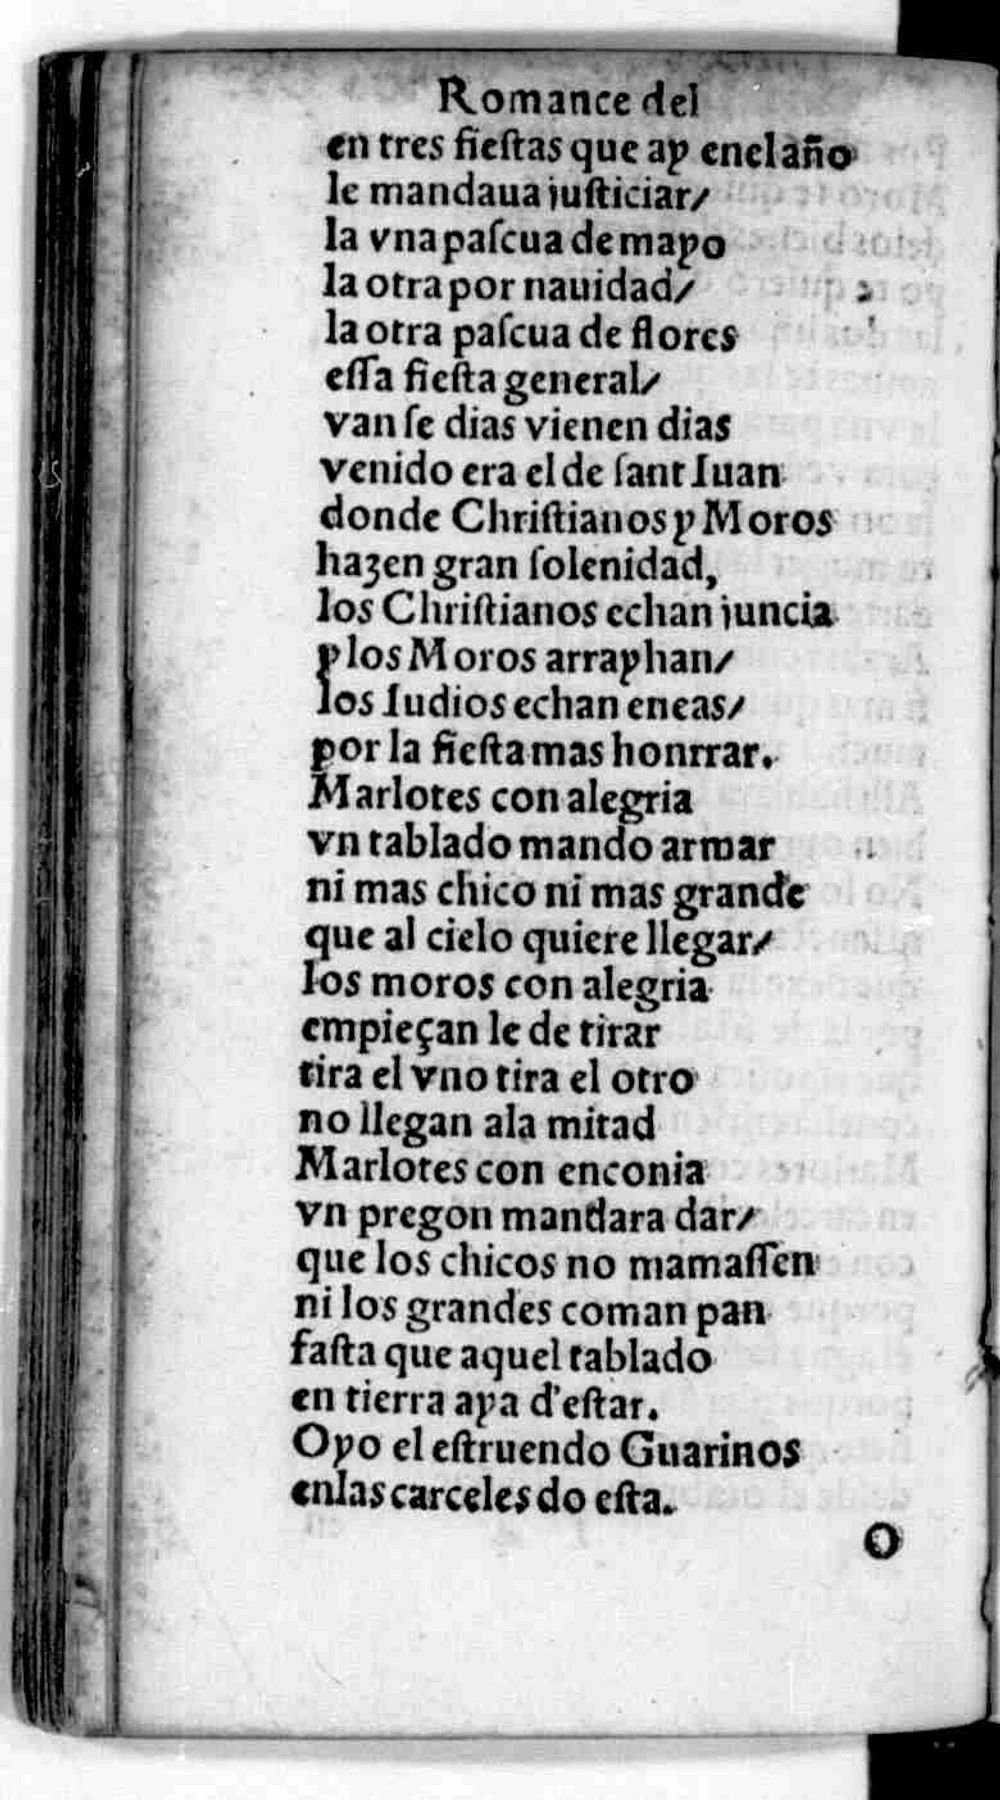 Romance del
en tres fieſtas que ay enel año
le mandaua iuſticiar/
la vna paſcua de mayo
la otra por nauidad/
la otra paſcua de flores
eſſa fieſta general/
van ſe dias vienen dias
venido era el de ſant Iuan
donde Chriſtianos y Moros
hazen gran ſolenidad,
los Chriſtianos echan iuncia
y los Moros arrayhan/
los Iudios echan eneas/
por la fieſta mas honrrar.
Marlotes con alegria
vn tablado mando armar
ni mas chico ni mas grande
que al cielo quiere llegar/
los moros con alegria
empieçan le de tirar
tira el vno tira el otro
no llegan ala mitad
Marlotes con enconia
vn pregon mandara dar/
que los chicos no mamaſſen
ni los grandes coman pan
faſta que aquel tablado
en tierra aya d'eſtar.
Oyo el eſtruendo Guarinos
enlas carceles do eſta.
O